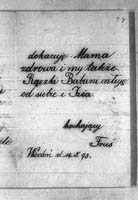 dokazuję Mama
zdrowa i my także
Rączki Babuni całuję
od siebie i Izia
kochający
Truś
Wiedeń d. 14.X.93.